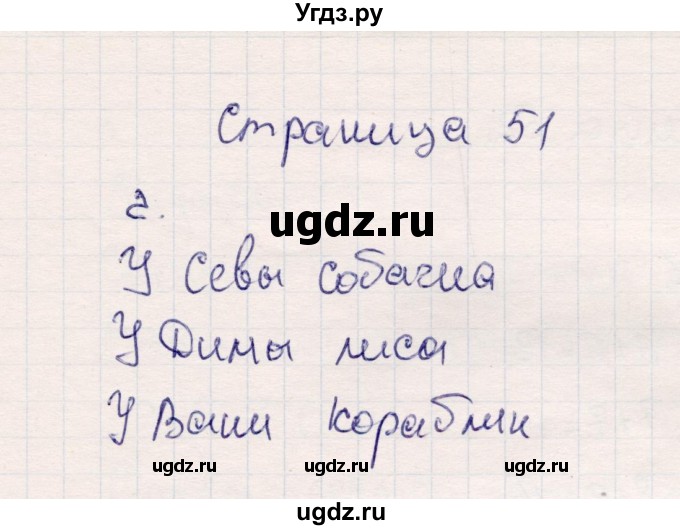 Угдз.ру
Страница 51
2.
ugdz.ru
У Севы собачка
У Димы лиса
У Вани кораблик
ugdz.ru ugdz.ru ugdz.ru
ugdz.ru